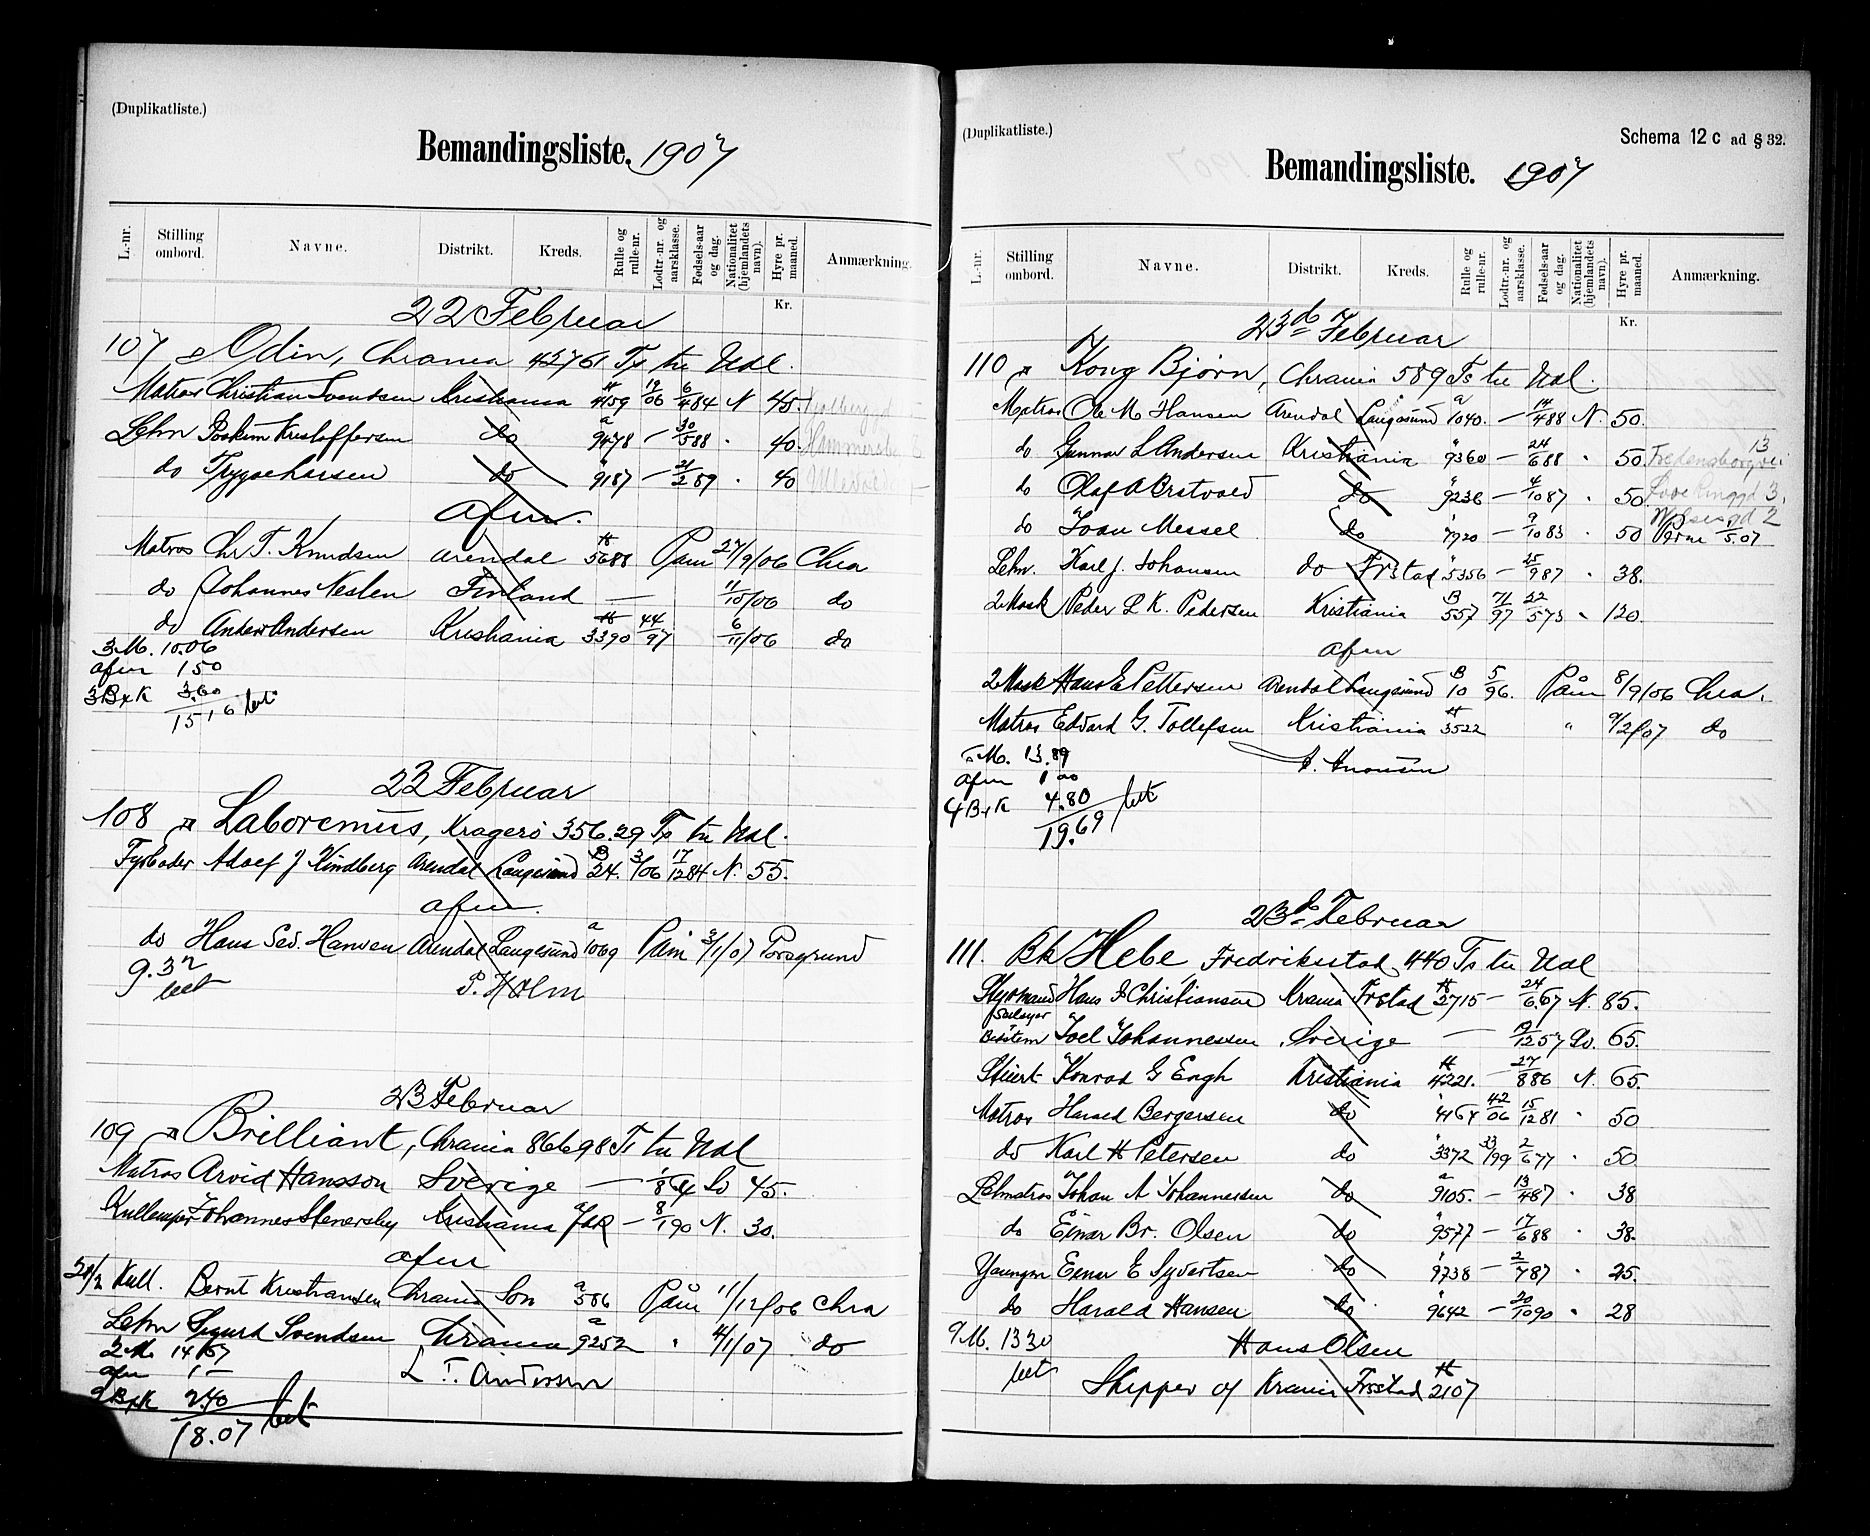 (Duplikatliste.)
Bemandingsliste. 1907
L.-nr. Stilling ombord. Navne. Distrikt. Kreds. Rulle og rulle-nr. Lodtr.-nr. og aarsklasse. Fødsels-aar og dag. Nationalitet (hjemlandets navn). Hyre pr. maaned. Anmærkning.
Kr.
22 Februar
107 Odin, Chrania 427 61 Ts til Udl.
Matros Christian Svendsen Kristiania 4159 19/06 6/484 N 45.
Letm Joakim Kristoffersen do a 9478 - 30/588 " 40.
do Trygve Larsen do 9187 - 21/289 " 40
Afm.
Matros Chr T. Knudsen Arendal 5688 Paam 27/9/06 Chra
do Johannes Neslen Finland — 11/10/06 do
do Anders Andersen Kristiania 3390 44/97 6/11/06 do
3 M. 10.06
afm 1 50
3 B & K 3.60
15 16 bet
23 Februar
108 Laboremus, Kragerø 356.29 Ts til Udl.
Fyrbøder Adolf J Kindberg Arendal Langesund B 24. 3/06 17/1284 N. 55.
afm.
do Hans Sev. Hansen Arendal Langesund a 1069 Paam 3/1/07 Porsgrund
9.32 bet
P. Holm
23 Februar
109 Brilliant, Chrania 866 98 Ts til Udl
Matros Arvid Hansson Sverige — 1/864 Sv 45.
Kullemper Johannes Stenersby Kristiania - 8/190 N. 30.
afm
Kull. Bernt Kristiansen Chrania Son a 386 Paam 11/12/06 Chra
Letm Sigurd Svendsen Chrania a 9252 " 4/1/07 do
2 M. 14 67
afm 1 -
2 B & K 2.40
L T. Andersen
18.07 bet
(Duplikatliste.)
Schema 12 c ad § 32.
Bemandingsliste. 1907
L.-nr. Stilling ombord. Navne. Distrikt. Kreds. Rulle og rulle-nr. Lodtr.-nr. og aarsklasse. Fødsels-aar og dag. Nationalitet (hjemlandets navn). Hyre pr. maaned. Anmærkning.
Kr.
23d Februar
110 Kong Bjørn, Chrania 589 Ts til Udl.
Matros Ole M Hansen Arendal Langesund a 1040. - 14/488 N. 50.
do Gunnar L Andersen Kristiania " 9360 - 24/688 " 50 Fredensborgvei 13
do Olaf A Ørstvold do 9236 - 4/1087 " 50
do Ivan Messel do 7920 - 9/1083 " 50
Letm. Karl J. Johansen do Frstad " 5356 - 25/987 " 38.
2 Mask Peder L K. Pedersen Kristiania B 557 71/97 22/573 " 120.
afm
2 Mask Hans E Pettersen Arendal Langesund B 10 5/96. Paam 8/9/06 Chra.
Matros Edvard G. Tollefsen Kristiania 3522 " 9/2/07 do
M. 13.89
afm 1 00
4 B & K 4.80
19.69 bet
23d Februar
111. Bk Hebe Fredrikstad 440 Ts til Udl
Styrmand Hans J Christiansen Krania Frstad 2715 - 24/667 N. 85.
Seilmager
Bestem Joel Johannessen Sverige — 19/1257 Sv. 65.
Stuert Konrad G Engh Kristiania 4221. - 27/886 N. 65.
Matros Harald Bergersen do 4164 42/06 15/1281 " 50
do Karl H Petersen do " 3372 33/99 2/677 " 50
Letmatros Johan A Johannessen do a 9105. - 13/487 " 38
do Einar Br. Olsen do " 9577 - 17/688 " 38.
Youngm Einar E Syvertsen do 9738 - 2/787 " 25.
do Harald Hansen do 9642 - 20/1090 " 28
9 M. 13 30 Hans Olsen
bet Skipper af Krania Frstad 2107